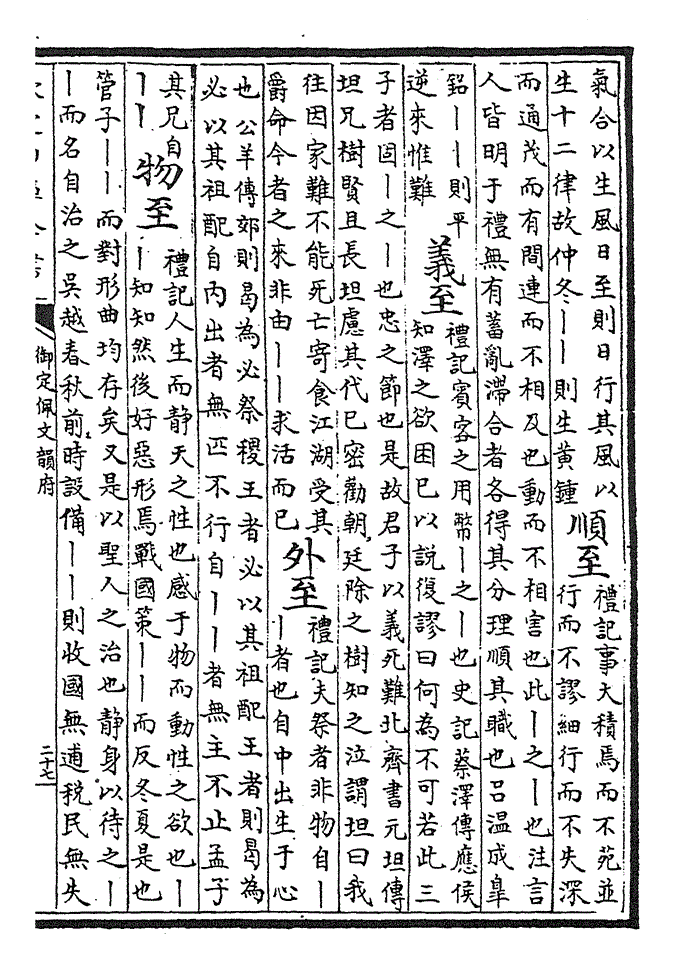 氣合以生風日至則日行其風以
生十二律故仲冬丨丨則生黄鍾
順至
禮記事大積焉而不苑並
行而不謬細行而不失深
而通茂而有間連而不相及也動而不相害也此丨之丨也注言
人皆明于禮無有蓄亂滯合者各得其分理順其職也吕温成臯
銘丨丨則平
逆來惟難
義至
禮記賓客之用幣丨之丨也史記蔡澤傳應侯
知澤之欲困已以説復謬曰何為不可若此三
子者固丨之丨也忠之節也是故君子以義死難北齊書元坦傳
坦兄樹賢且長坦慮其代已密勸朝廷除之樹知之泣謂坦曰我
往因家難不能死亡寄食江湖受其
爵命今者之來非由丨丨求活而已
外至
禮記夫祭者非物自丨
丨者也自中出生于心
也公羊傳郊則曷為必祭稷王者必以其祖配王者則曷為
必以其祖配自内出者無匹不行自丨丨者無主不止孟子
其兄自
丨丨
物至
禮記人生而静天之性也感于物而動性之欲也丨
丨知知然後好惡形焉戰國策丨丨而反冬夏是也
管子丨丨而對形曲均存矣又是以聖人之治也静身以待之丨
丨而名自治之吳越春秋前時設備丨丨則收國無逋税民無失
御定佩文韻府
二十七